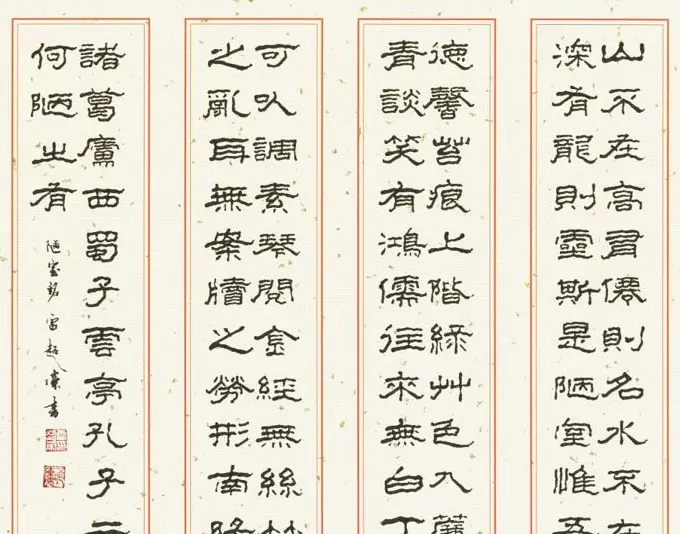 山不在高有僊則名水不在
深有龍則靈斯是陋室惟吾
德馨苔痕上階綠艸色入簾
青談笑有鴻儒往來無白丁
可以調素琴閱金經無絲竹
之亂耳無案牘之勞形南陽
諸葛廬西蜀子雲亭孔子云
何陋之有
陋室銘 書